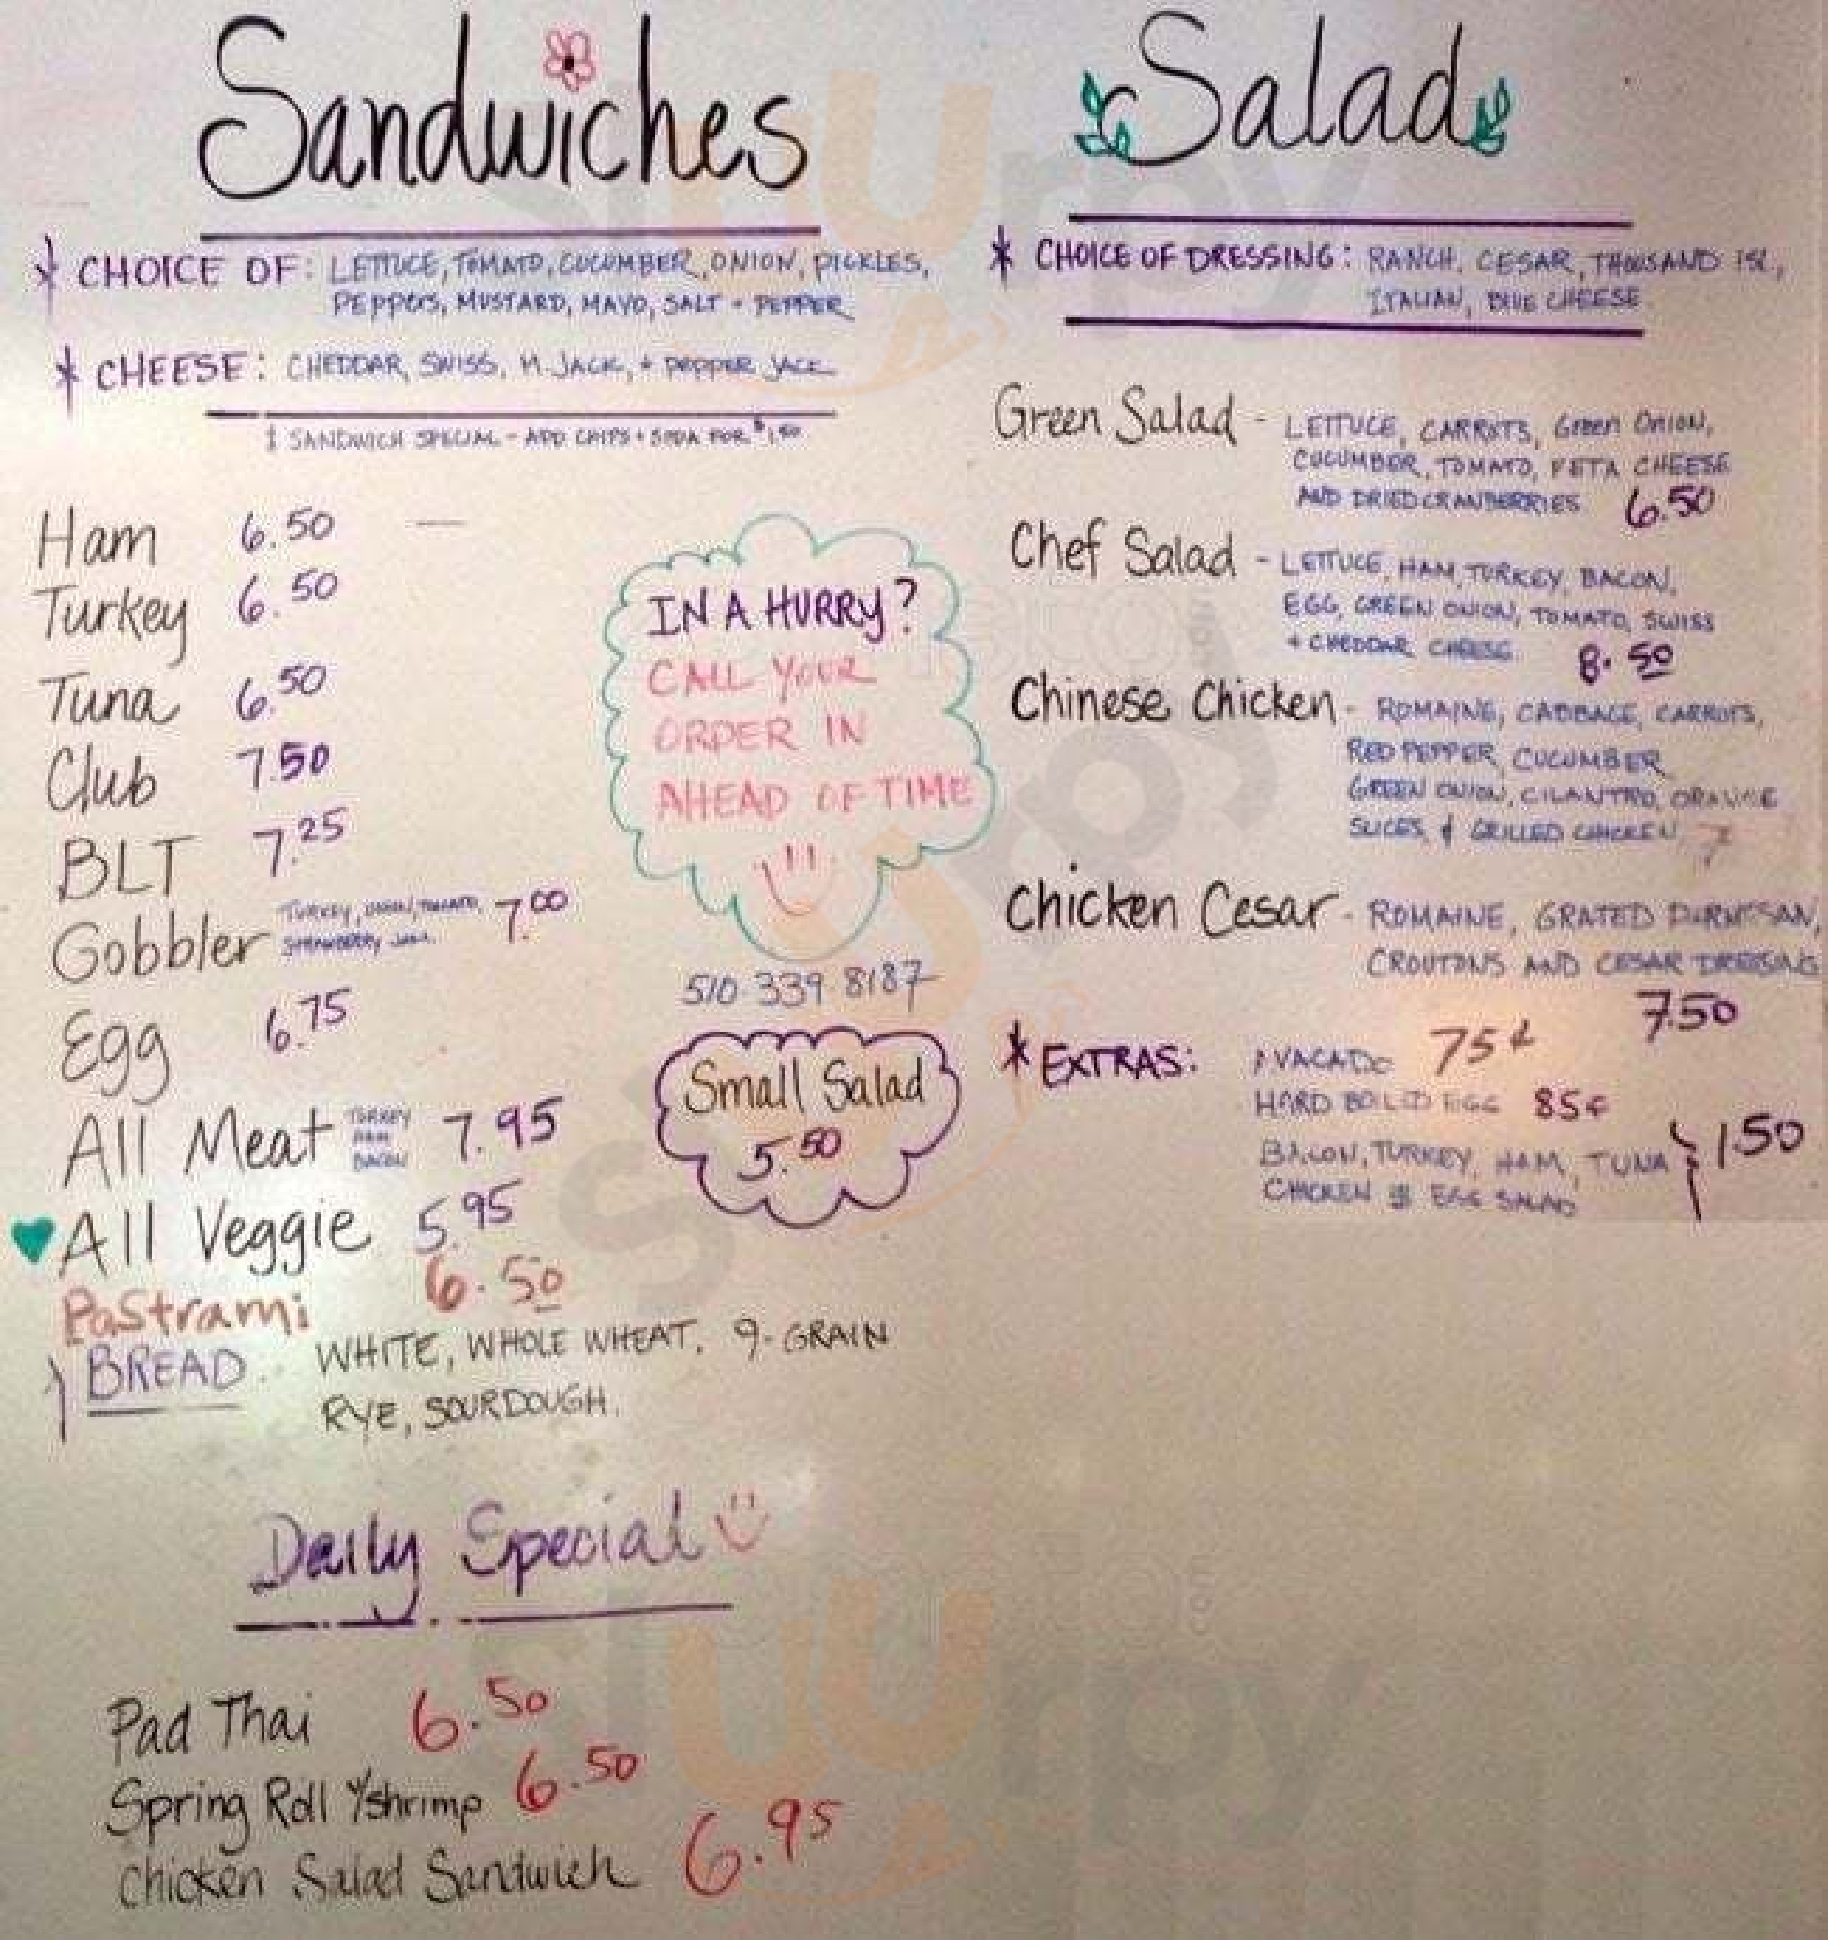 Sandwiches
* CHOICE OF: LETTUCE, TOMATO, CUCUMBER, ONION, PICKLES,
PEPPERS, MUSTARD, MAYO, SALT + PEPPER
* CHEESE: CHEDDAR, SWISS, M. JACK, + PEPPER JACK
SANDWICH SPECIAL - ADD CHIPS + SODA FOR $1.50
Ham 6.50
Turkey 6.50
Tuna 6.50
Club 7.50
BLT 7.25
Gobbler TURKEY, ONION, TOMATO, 7.00
STRAWBERRY JAM.
Egg 6.75
All Meat TURKEY 7.95
HAM
BACON
All Veggie 5.95
Pastrami 6.50
BREAD WHITE, WHOLE WHEAT, 9-GRAIN
RYE, SOURDOUGH.
IN A HURRY?
CALL YOUR
ORDER IN
AHEAD OF TIME
510 339 8187
Small Salad
5.50
Daily Special
Pad Thai 6.50
Spring Roll w/shrimp 6.50
Chicken Salad Sandwich 6.95
Salad
* CHOICE OF DRESSING: RANCH, CESAR, THOUSAND ISL,
ITALIAN, BLUE CHEESE
Green Salad - LETTUCE, CARROTS, Green Onion,
CUCUMBER, TOMATO, FETA CHEESE
AND DRIED CRANBERRIES 6.50
Chef Salad - LETTUCE, HAM, TURKEY, BACON,
EGG, GREEN ONION, TOMATO, SWISS
+ CHEDDAR CHEESE 8.50
Chinese Chicken - ROMAINE, CABBAGE, CARROTS,
RED PEPPER, CUCUMBER
GREEN ONION, CILANTRO, ORANGE
SLICES, & GRILLED CHICKEN 7
Chicken Cesar - ROMAINE, GRATED PARMESAN,
CROUTONS AND CESAR DRESSING
7.50
* EXTRAS: AVACADO 75¢
HARD BOILED EGG 85¢
BACON, TURKEY, HAM, TUNA } 1.50
CHICKEN EGG SALAD